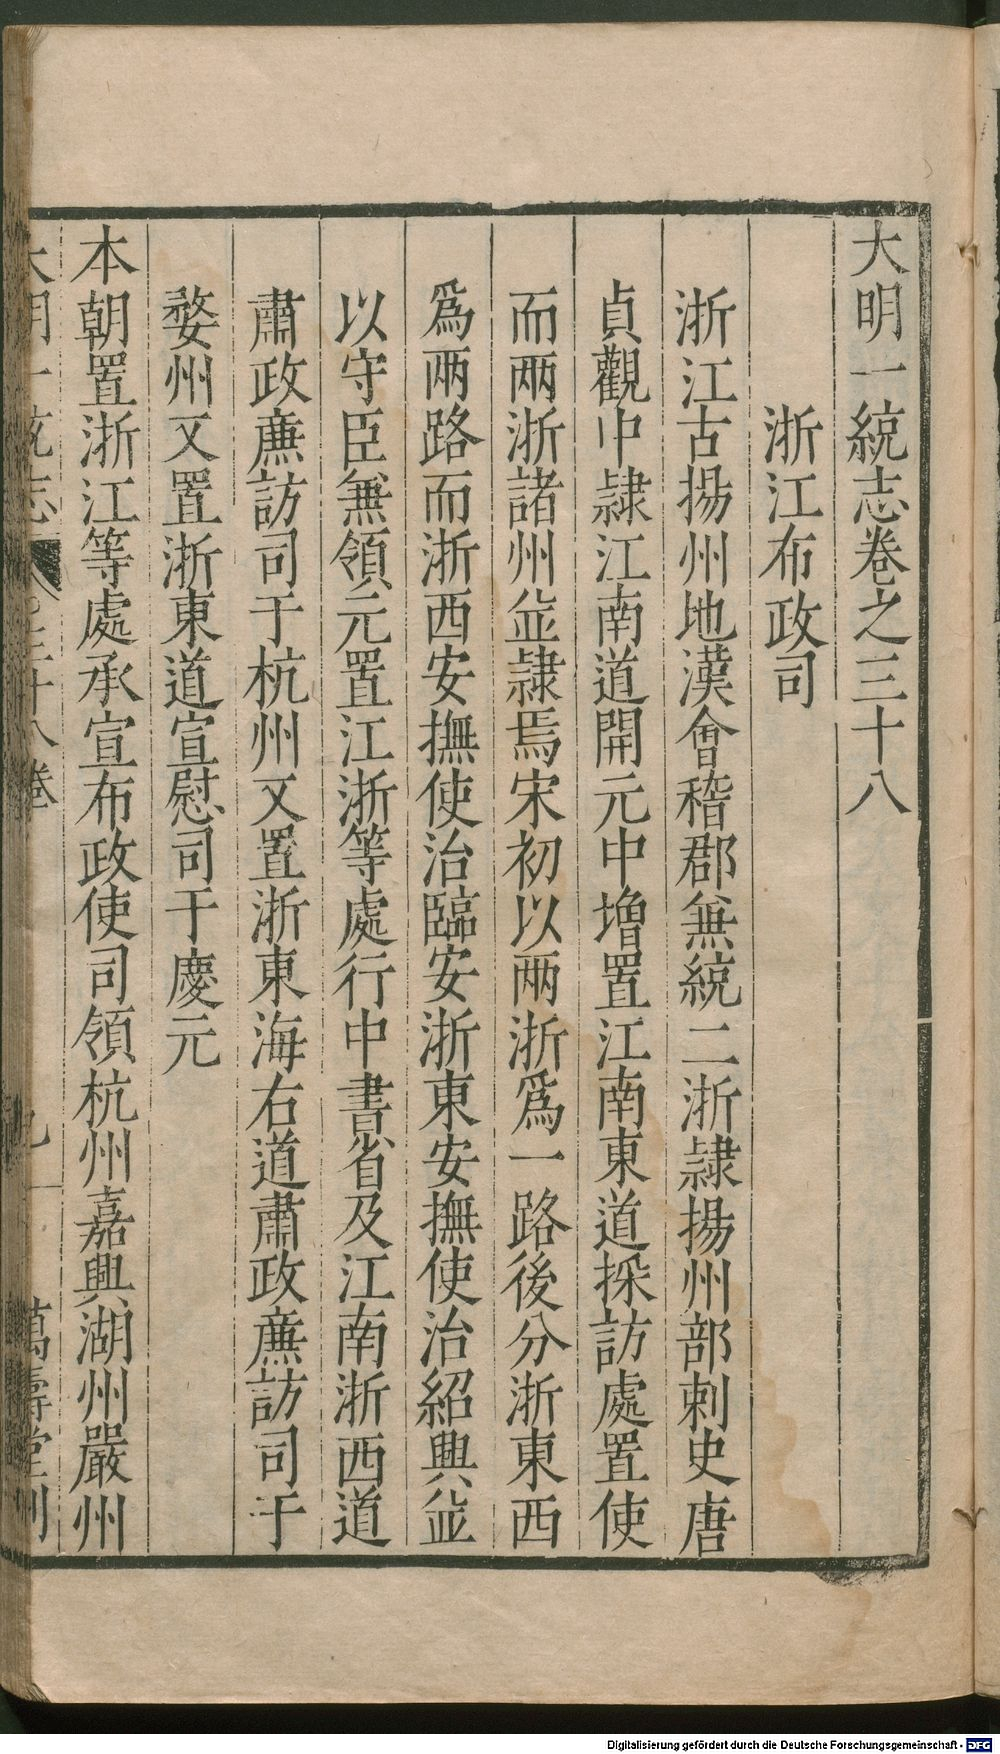 大明一統志卷之三十八
浙江布政司
浙江古揚州地漢會稽郡無統二浙隷揚州部刺史唐
貞觀中隷江南道開元中增置江南東道採訪處置使
而兩浙諸州並隷焉宋初以兩浙爲一路後分浙東西
爲兩路而浙西安撫使治臨安浙東安撫使治紹興並
以守臣兼領元置江浙等處行中書省及江南浙西道
肅政廉訪司于杭州又置浙東海右道肅政廉訪司于
婺州又置浙東道宣慰司于慶元
本朝置浙江等處承宣布政使司領杭州嘉興湖州嚴州
大明一統志 卷三十八卷 萬壽堂刊
Digitalisierung gefördert durch die Deutsche Forschungsgemeinschaft - DFG